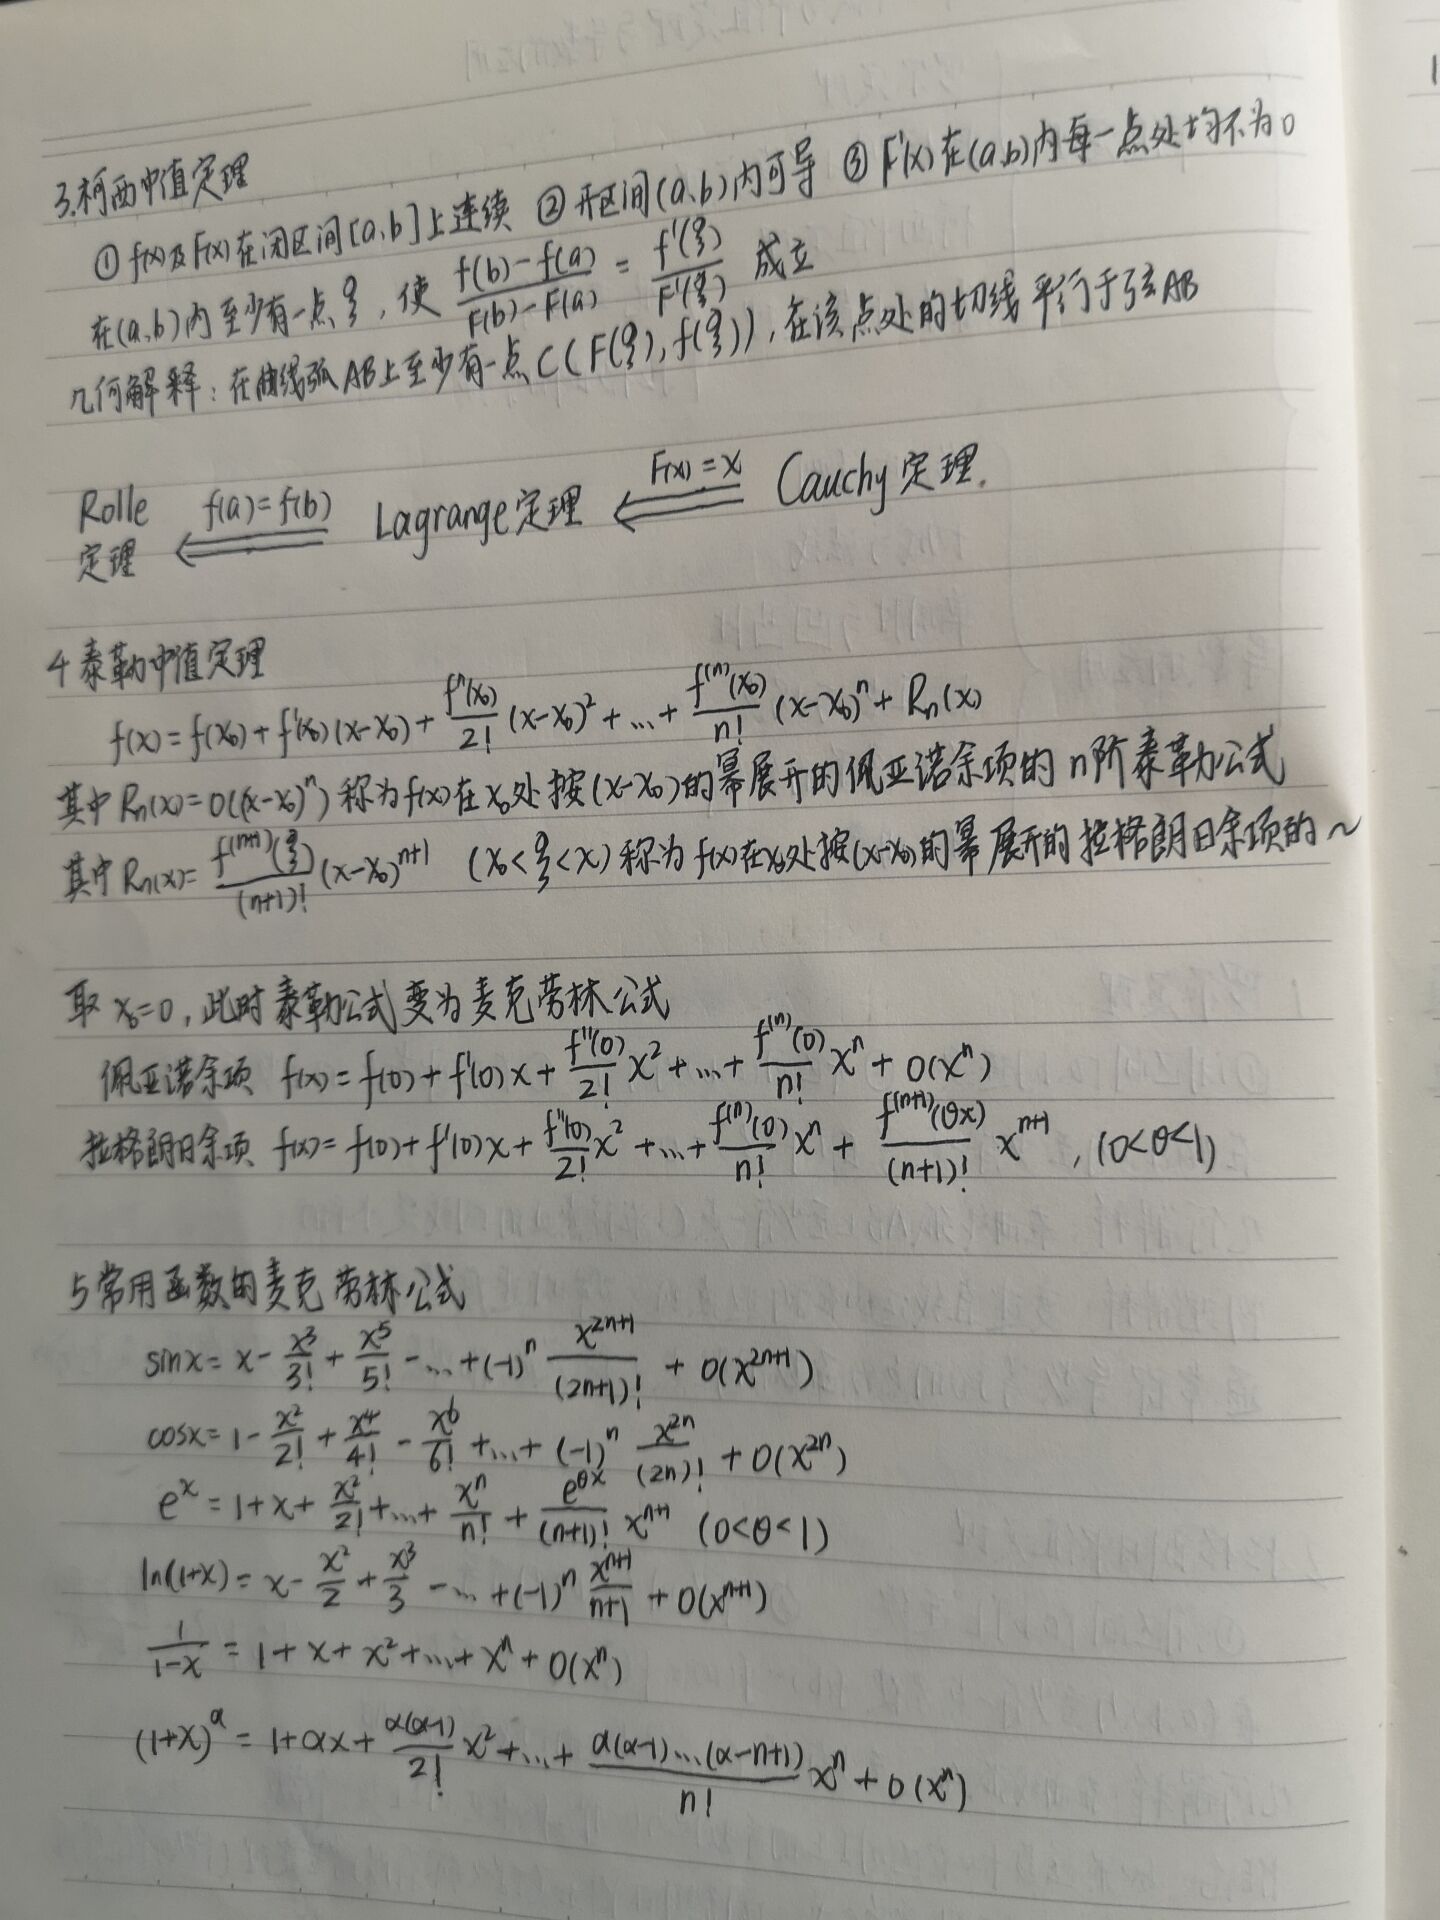 3.柯西中值定理
① f(x)及F(x)在闭区间[a,b]上连续 ② 开区间(a,b)内可导 ③ F'(x)在(a,b)内每一点处均不为0
在(a,b)内至少有一点ξ, 使 \frac{f(b)-f(a)}{F(b)-F(a)} = \frac{f'(ξ)}{F'(ξ)} 成立
几何解释: 在曲线弧AB上至少有一点C(F(ξ), f(ξ)), 在该点处的切线平行于弦AB
Rolle定理 ⟸ f(a)=f(b) Lagrange定理 ⟸ F(x)=x Cauchy定理.
4 泰勒中值定理
f(x)=f(x₀)+f'(x₀)(x-x₀)+\frac{f''(x₀)}{2!}(x-x₀)²+...+\frac{f^{(n)}(x₀)}{n!}(x-x₀)^n+R_n(x)
其中R_n(x)=o((x-x₀)^n)称为f(x)在x₀处按(x-x₀)的幂展开的佩亚诺余项的n阶泰勒公式
其中R_n(x)=\frac{f^{(n+1)}(ξ)}{(n+1)!}(x-x₀)^{n+1} (x₀<ξ<x)称为f(x)在x₀处按(x-x₀)的幂展开的拉格朗日余项的~
取x₀=0, 此时泰勒公式变为麦克劳林公式
佩亚诺余项 f(x)=f(0)+f'(0)x+\frac{f''(0)}{2!}x²+...+\frac{f^{(n)}(0)}{n!}x^n+o(x^n)
拉格朗日余项 f(x)=f(0)+f'(0)x+\frac{f''(0)}{2!}x²+...+\frac{f^{(n)}(0)}{n!}x^n+\frac{f^{(n+1)}(θx)}{(n+1)!}x^{n+1}, (0<θ<1)
5 常用函数的麦克劳林公式
sinx=x-\frac{x³}{3!}+\frac{x⁵}{5!}-...+(-1)^n\frac{x^{2n+1}}{(2n+1)!}+o(x^{2n+1})
cosx=1-\frac{x²}{2!}+\frac{x⁴}{4!}-\frac{x⁶}{6!}+...+(-1)^n\frac{x^{2n}}{(2n)!}+o(x^{2n})
e^x=1+x+\frac{x²}{2!}+...+\frac{x^n}{n!}+\frac{e^{θx}}{(n+1)!}x^{n+1} (0<θ<1)
ln(1+x)=x-\frac{x²}{2}+\frac{x³}{3}-...+(-1)^n\frac{x^{n+1}}{n+1}+o(x^{n+1})
\frac{1}{1-x}=1+x+x²+...+x^n+o(x^n)
(1+x)^α=1+αx+\frac{α(α-1)}{2!}x²+...+\frac{α(α-1)...(α-n+1)}{n!}x^n+o(x^n)